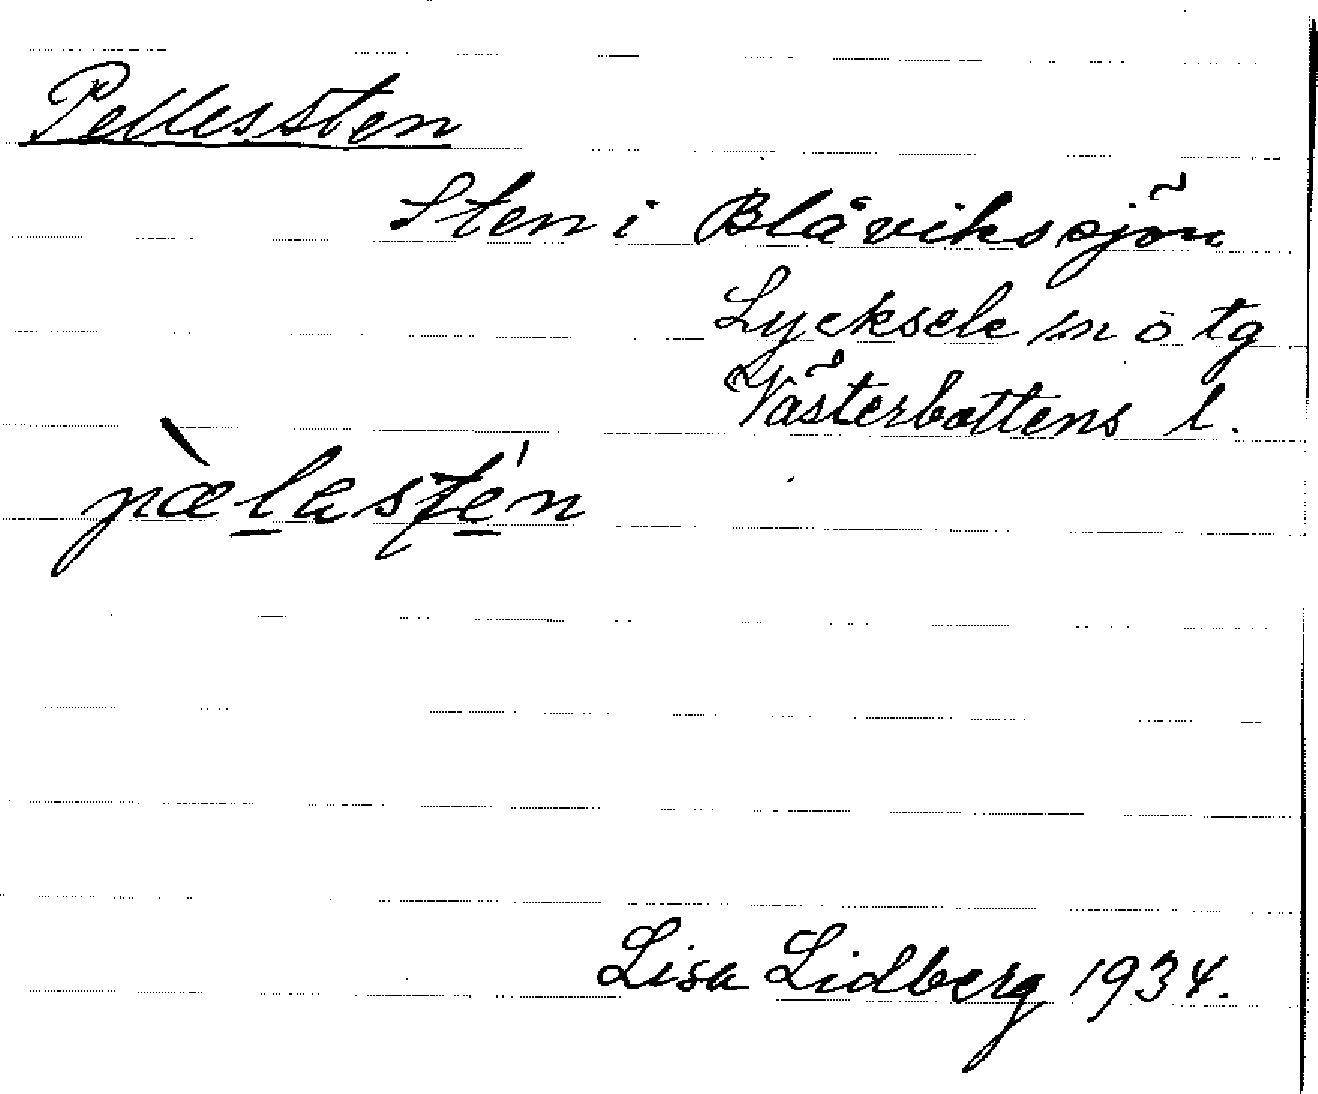 Pellessten
Sten i Blåvikssjön
Lycksele sn o tg
Västerbottens l.
pæ̀l̲asté̲n
Lisa Lidberg 1934.